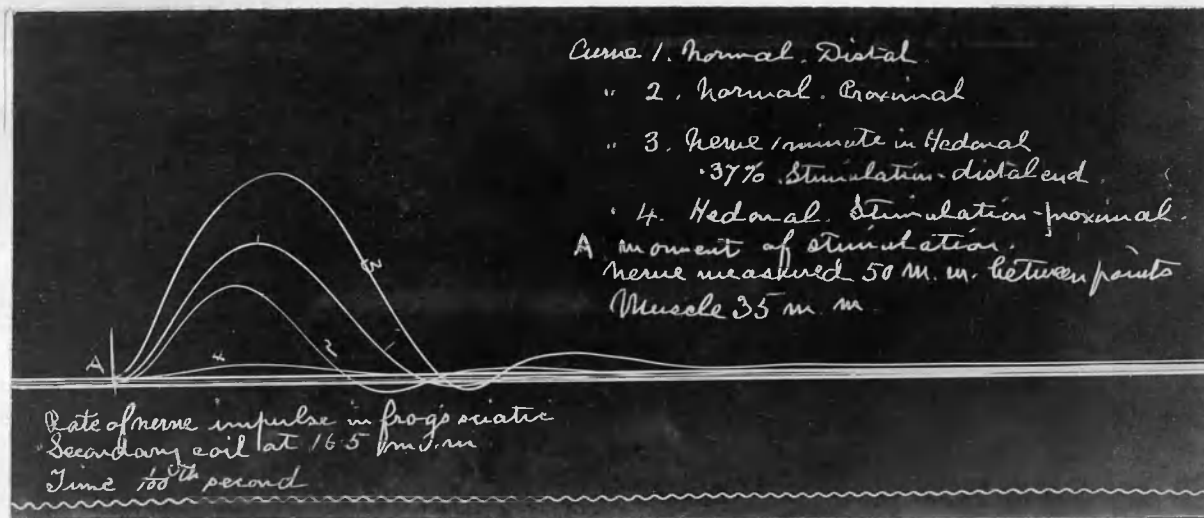 Curve 1. Normal. Distal.
" 2. Normal. Proximal
" 3. Nerve 1 minute in Hedonal
.37% Stimulation - distal end.
" 4. Hedonal. Stimulation - proximal.
A moment of stimulation.
Nerve measured 50 m.m. between points
Muscle 35 m m
3
1
1
2
4
A
Rate of nerve impulse in frog's sciatic
Secondary coil at 165 m.m
Time 1/100th second